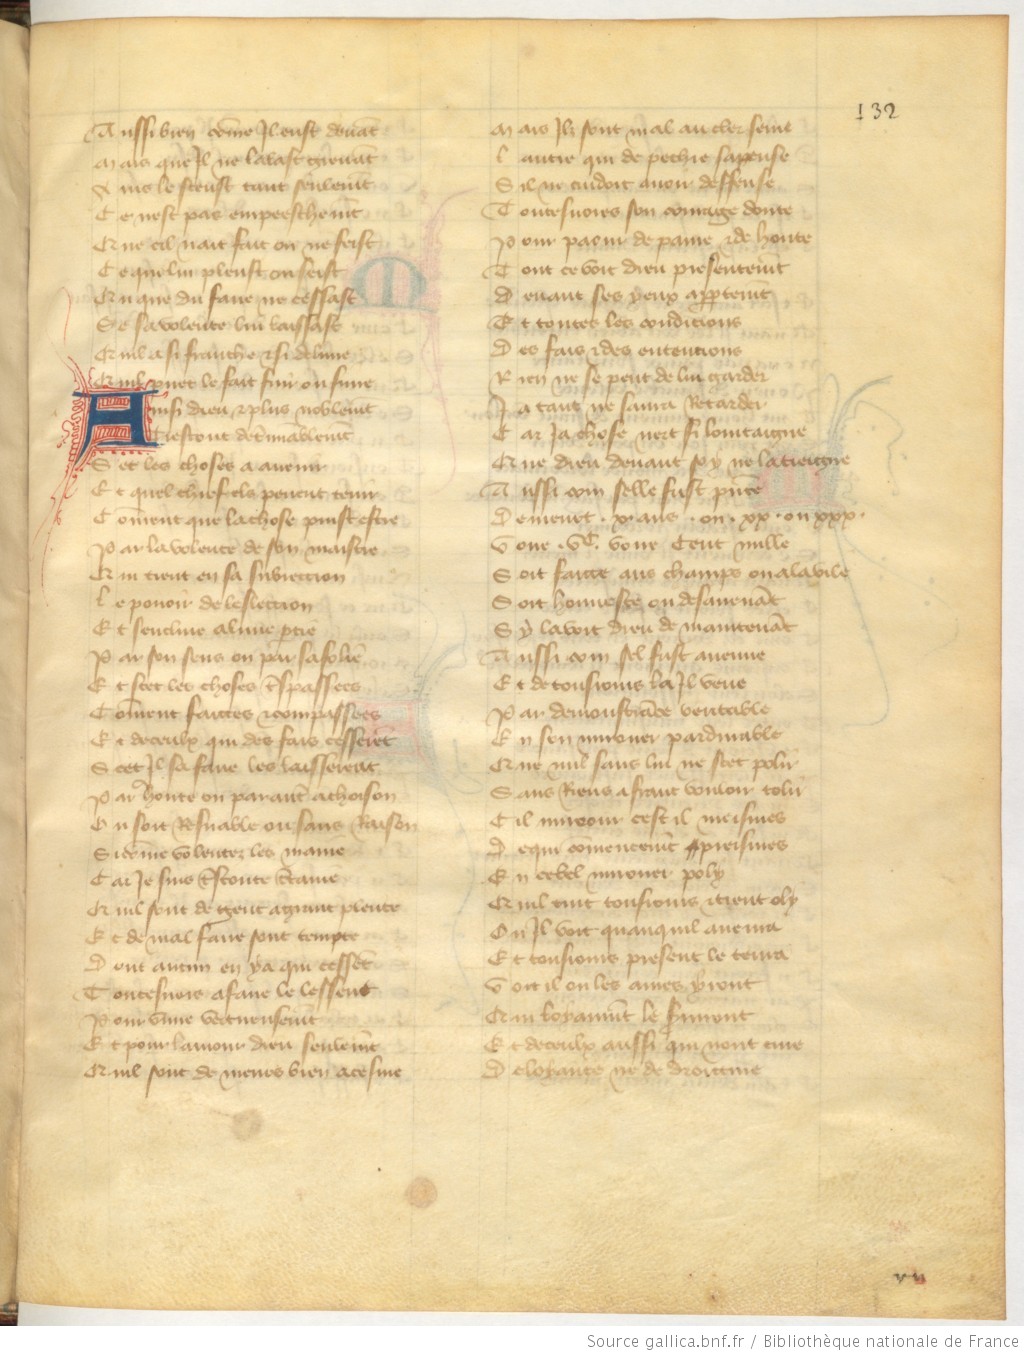 132
Aussi bien com̄e Jl eust devāt
Mais que Jl ne lavast grevāt
Ains le sceust tant seulemt̄
Ce nest pas empeeschemt̄
Qᷓ ne cil nait fait ou ne feist
Ce que lui pleust ou seist
Ou que du faire ne cessast
Se sa volente lui laissast
Qͥl a si franche ⁊ si delivre
Qͥl puet le fait fuir ou suivre
Ainsi dieu ⁊ plus noblemt̄
Et tressout det̄minablemt̄
Scet les choses a avenir
Et quel chief els peuent tenir
Com̄ent que la chose puist estre
Par la volente de son maistre
Qͥ tient en sa subiection
Le povoir de leslection
Et sencline a lune p̄tie
Par son sens ou par sa folie
Et scet les choses t̄spassees
Com̄ent faictes ⁊ compassees
Et de ceulx qui des fais cesserēt
Scet Jl sa faire les laisserent
Par honte ou par autr̄ achoison
Ou soit Resnable ou sans Raison
Si com̄e volentez les maine
Car Je suis t̄stoute c̄taine
Qͥl sont de gent a grant plente
Et de mal faire sont tempte
Dont aucun en y a qui cessēt
Toutesvoies a faire le lessent
Pour vivre vertueusemt̄
Et pour lamour dieu seulemt̄
Qͥl sont de meurs bien acesme
Mais Jlz sont mal au cler seme
Lautre qui de pechie sapense
Sil ne cuidoit avoir deffense
Toutesvoies son courage donte
Pour paour de paine ⁊ de honte
Tout ce voit dieu presentemt̄
Devant ses yeux app̄temt̄
Et toutes les conditions
Des fais ⁊ des entencions
Rien ne se peut de lui garder
Ja tant ne saura Retarder
Car Ja chose nert si lointaigne
Qᷓ ne dieu devant soy ne la tieigne
Aussi com selle fust p̄nte
Demeurt . x . ans . ou . xx . ou xxx .
Voire . vC. voire Cent mille
Soit faicte aus champs ou a la vile
Soit honneste ou desavenāt
Sy la voit dieu de maintenāt
Aussi com sel fust avenue
Et de tousiours la Jl veue
Par demonstrāce veritable
En son mirouer pardurable
Qᷓ ne nul sans lui ne scet polir
Sans Riens a franc vouloir tolir
Cil mirouer cest il meismes
De qui com̄encemt̄ preismes
En cebel mirouer poly
Qͥl tint tousiours ⁊ tient o ly
Ou Jl voit quanquil avenra
Et tousiours present le tenra
Voit il ou les ames yront
Qͥ loyaumt̄ le serviront
Et de ceulx aussi qui nont cure
De loyaute ne de droicture
Source gallica.bnf.fr / Bibliothèque nationale de France